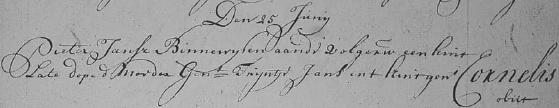 Den 25 Junij
Pieter Jansz Binnewijsen aande volgerw een kint
Late dop d Moeder Trijntje Jans int kuijgen Cornelis
obiit